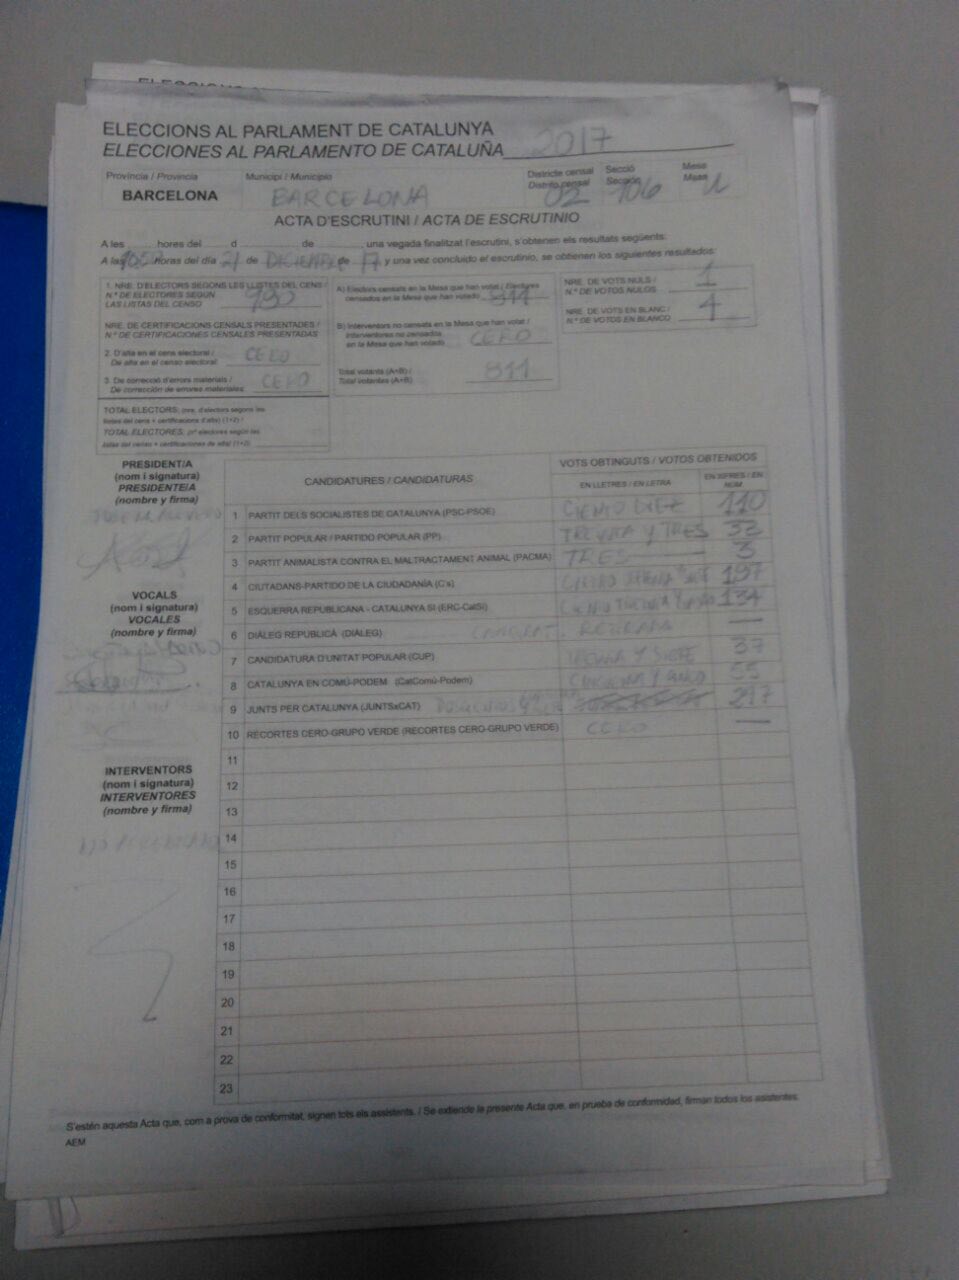 ELECCIONS AL PARLAMENT DE CATALUNYA
ELECCIONES AL PARLAMENTO DE CATALUÑA 2017
Província / Provincia Municipi / Municipio Districte censal Secció Mesa
Distrito censal Sección Mesa
BARCELONA BARCELONA 02 106 U
ACTA D'ESCRUTINI / ACTA DE ESCRUTINIO
A les hores del d de una vegada finalitzat l'escrutini, s'obtenen els resultats següents:
A las horas del día 21 de DICIEMBRE de 17 y una vez concluido el escrutinio, se obtienen los siguientes resultados:
1. NRE. D'ELECTORS SEGONS LES LLISTES DEL CENS /
N.º DE ELECTORES SEGÚN
LAS LISTAS DEL CENSO 930
NRE. DE CERTIFICACIONS CENSALS PRESENTADES /
N.º DE CERTIFICACIONES CENSALES PRESENTADAS
2. D'alta en el cens electoral /
De alta en el censo electoral: CERO
3. De correcció d'errors materials /
De corrección de errores materiales: CERO
TOTAL ELECTORS: (nre. d'electors segons les
llistes del cens + certificacions d'alta) (1+2) /
TOTAL ELECTORES: (nº electores según las
listas del censo + certificaciones de alta) (1+2)
A) Electors censats en la Mesa que han votat / Electores
censados en la Mesa que han votado
B) Interventors no censats en la Mesa que han votat /
Interventores no censados
en la Mesa que han votado CERO
Total votants (A+B) /
Total votantes (A+B)
NRE. DE VOTS NULS /
N.º DE VOTOS NULOS 1
NRE. DE VOTS EN BLANC /
N.º DE VOTOS EN BLANCO 4
PRESIDENT/A
(nom i signatura)
PRESIDENTE/A
(nombre y firma)
VOCALS
(nom i signatura)
VOCALES
(nombre y firma)
INTERVENTORS
(nom i signatura)
INTERVENTORES
(nombre y firma)
CANDIDATURES / CANDIDATURAS
VOTS OBTINGUTS / VOTOS OBTENIDOS
EN LLETRES / EN LETRA EN XIFRES / EN NÚM
1 PARTIT DELS SOCIALISTES DE CATALUNYA (PSC-PSOE) CIENTO DIEZ 110
2 PARTIT POPULAR / PARTIDO POPULAR (PP) TREINTA Y TRES 33
3 PARTIT ANIMALISTA CONTRA EL MALTRACTAMENT ANIMAL (PACMA) TRES 3
4 CIUTADANS-PARTIDO DE LA CIUDADANÍA (C's) 197
5 ESQUERRA REPUBLICANA - CATALUNYA SÍ (ERC-CatSí) CIENTO TREINTA Y 134
6 DIÀLEG REPUBLICÀ (DIÀLEG)
7 CANDIDATURA D'UNITAT POPULAR (CUP) TREINTA Y SIETE 37
8 CATALUNYA EN COMÚ-PODEM (CatComú-Podem) CINCUENTA Y CINCO 55
9 JUNTS PER CATALUNYA (JUNTSxCAT) DOSCIENTOS
10 RECORTES CERO-GRUPO VERDE (RECORTES CERO-GRUPO VERDE) CERO —
11
12
13
14
15
16
17
18
19
20
21
22
23
S'estén aquesta Acta que, com a prova de conformitat, signen tots els assistents. / Se extiende la presente Acta que, en prueba de conformidad, firman todos los asistentes.
AEM